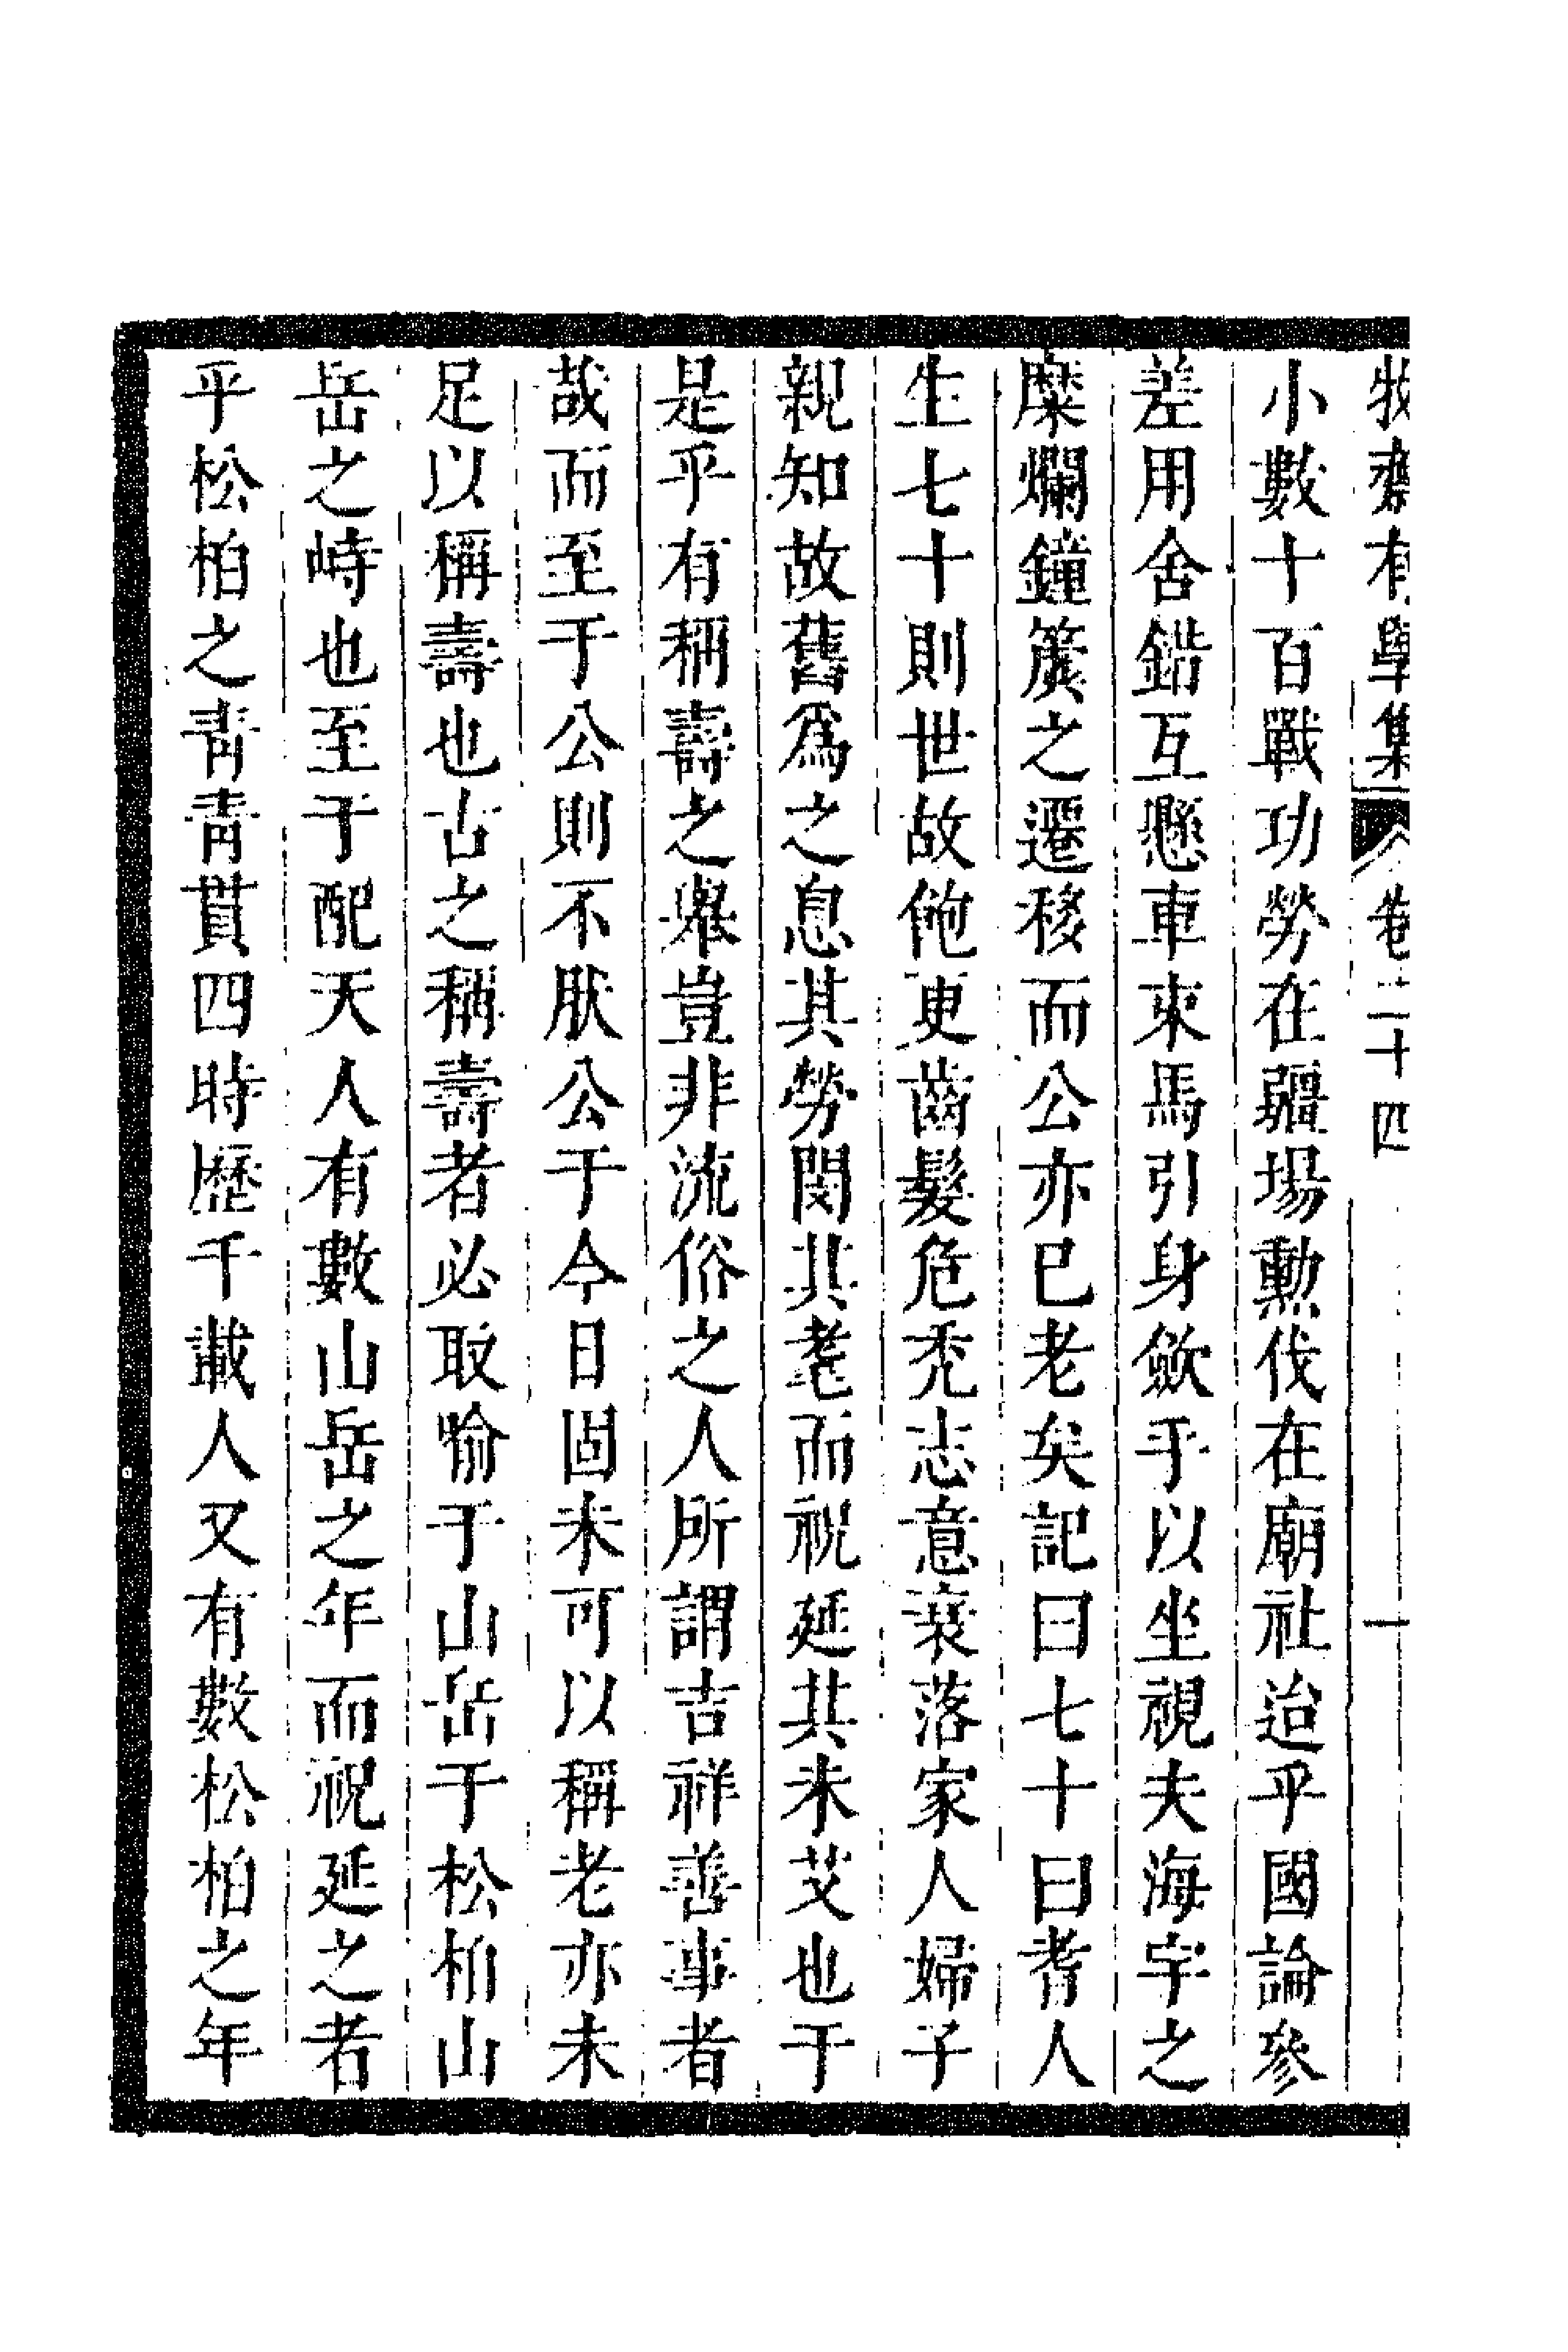 牧齋有學集 卷二十四 一
小數十百戰功勞在疆場勳伐在廟社迨乎國論參
差用舍錯互懸車束馬引身斂手以坐視夫海宇之
糜爛鐘簴之遷移而公亦已老矣記曰七十曰耆人
生七十則世故飽更齒髮危禿志意衰落家人婦子
親知故舊爲之息其勞閔其耄而祝延其未艾也于
是乎有稱壽之舉豈非流俗之人所謂吉祥善事者
哉而至于公則不然公于今日固未可以稱老亦未
足以稱壽也古之稱壽者必取喻于山岳于松柏山
岳之峙也至于配天人有數山岳之年而祝延之者
乎松柏之靑靑貫四時歷千載人又有數松柏之年